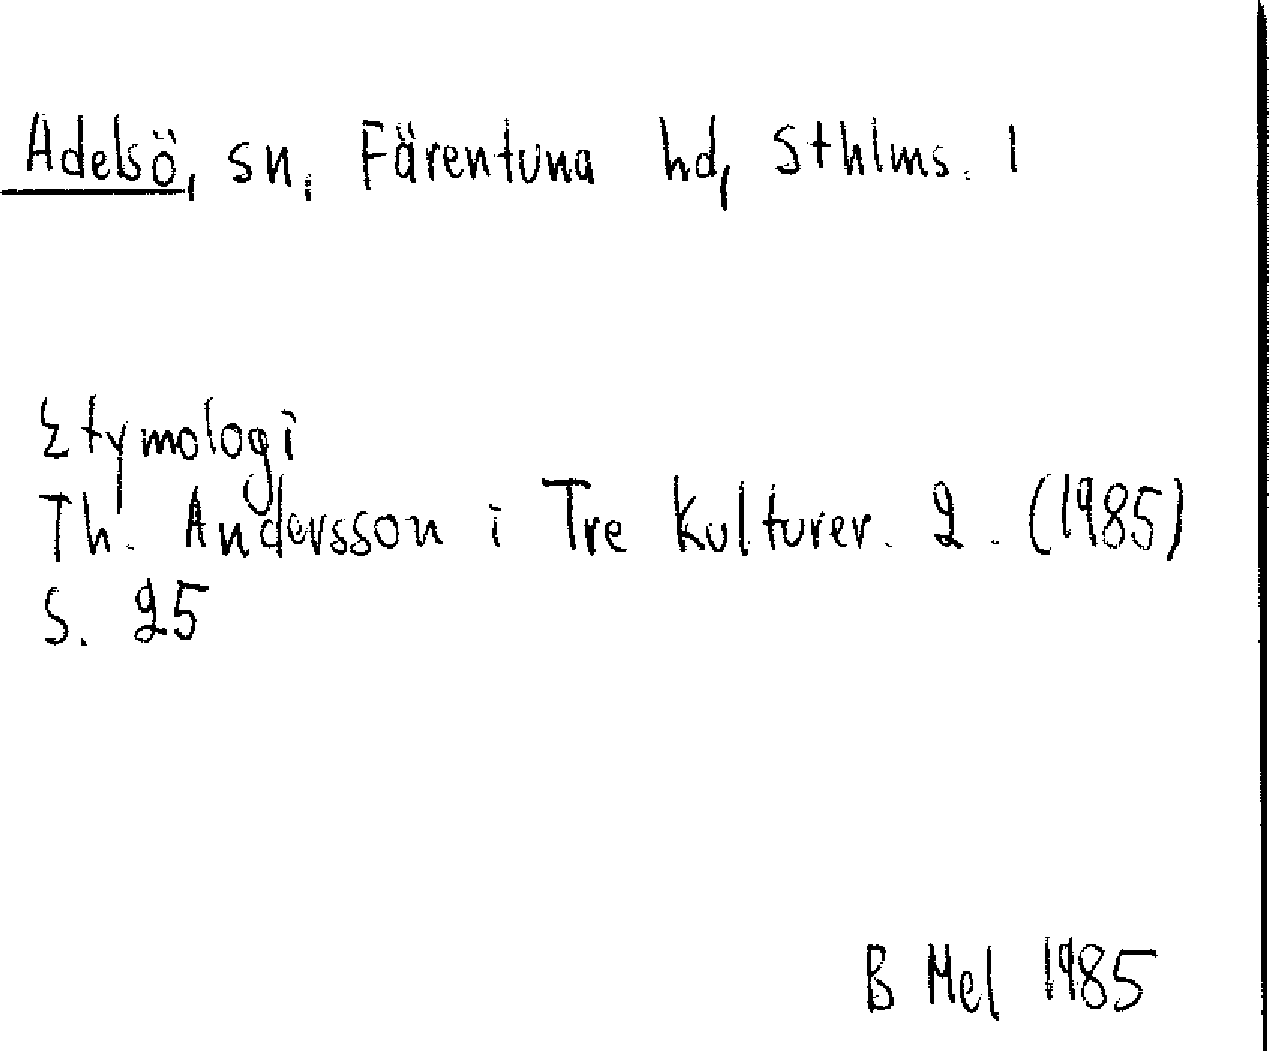 Adelsö, sn, Färentuna hd, Sthlms. l
Etymologi
Th. Andersson i Tre Kulturer. 2. (1985)
S. 25
B Mel 1985